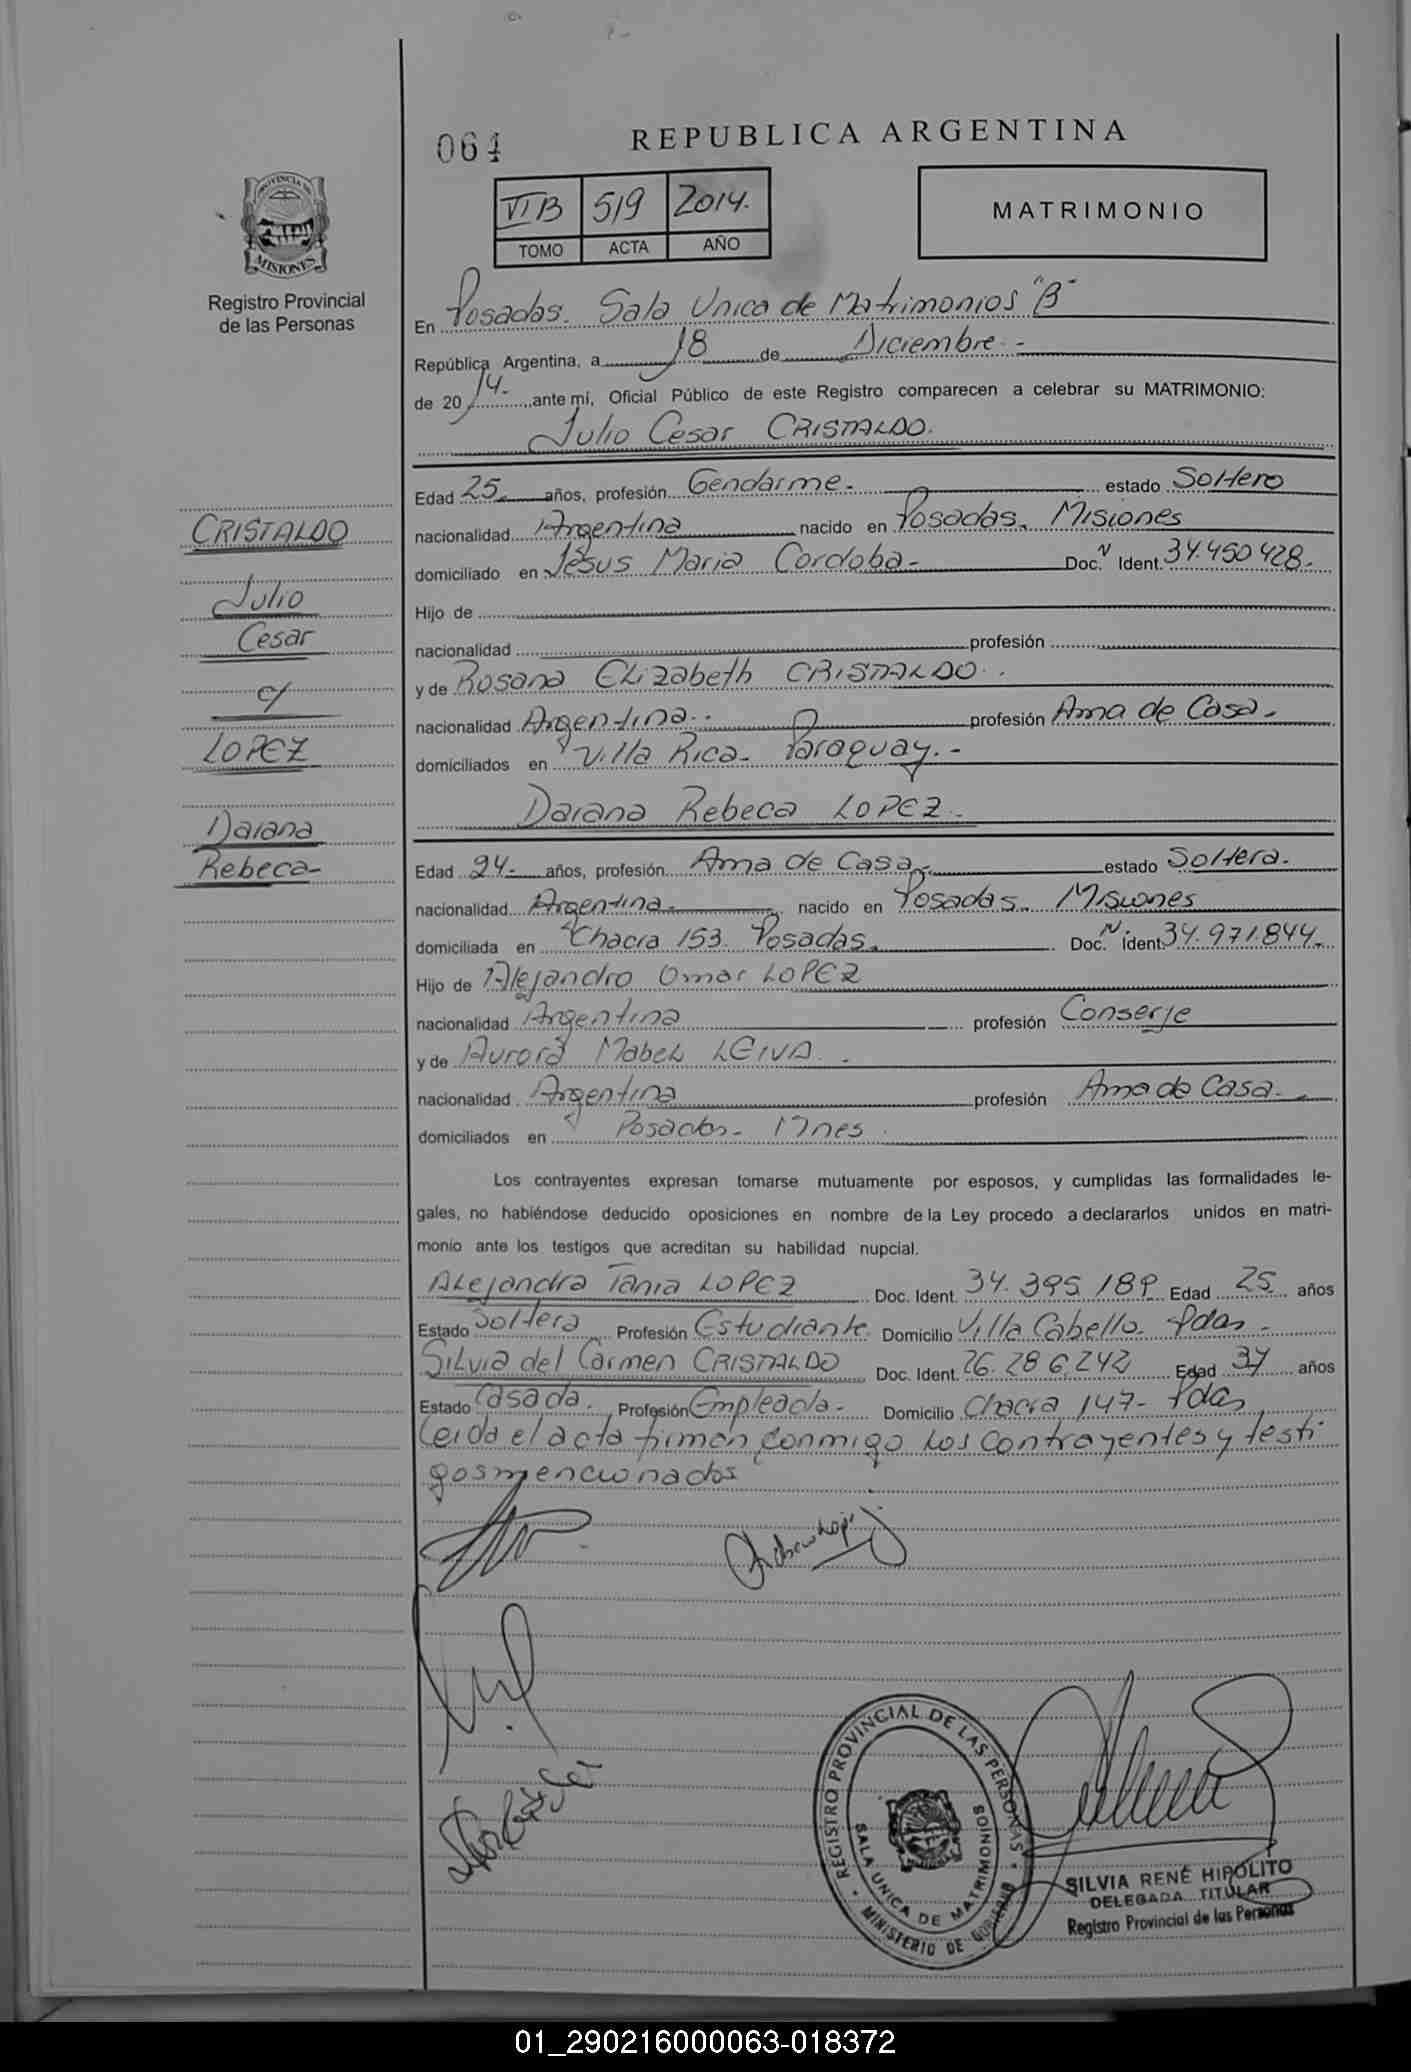 064
REPUBLICA ARGENTINA
VI B 519 2014.
TOMO ACTA AÑO
MATRIMONIO
PROVINCIA DE
MISIONES
Registro Provincial
de las Personas
En Posadas. Sala Unica de Matrimonios "B"
República Argentina, a 18 de Diciembre.-
de 2014.- ante mí, Oficial Público de este Registro comparecen a celebrar su MATRIMONIO:
Julio Cesar CRISTALDO.
Edad 25.- años, profesión Gendarme.- estado Soltero
nacionalidad Argentina nacido en Posadas. Misiones
domiciliado en Jesus Maria Cordoba.- Doc. N Ident. 34.450428.-
Hijo de
nacionalidad profesión
y de Rosana Elizabeth CRISTALDO.
nacionalidad Argentina.. profesión Ama de Casa.
domiciliados en Villa Rica- Paraguay.-
Daiana Rebeca LOPEZ.
Edad 24.- años, profesión Ama de Casa.- estado Soltera.
nacionalidad Argentina.- nacido en Posadas. Misiones
domiciliada en Chacra 153. Posadas. Doc. N Ident 34.971.844.-
Hijo de Alejandro Omar LOPEZ
nacionalidad Argentina profesión Conserje
y de Aurora Mabel LEIVA.
nacionalidad Argentina profesión Ama de Casa.
domiciliados en Posadas- Mnes
Los contrayentes expresan tomarse mutuamente por esposos, y cumplidas las formalidades le-
gales, no habiéndose deducido oposiciones en nombre de la Ley procedo a declararlos unidos en matri-
monio ante los testigos que acreditan su habilidad nupcial.
Alejandra Tania LOPEZ Doc. Ident. 34.395.189 Edad 25 años
Estado Soltera Profesión Estudiante. Domicilio Villa Cabello. Pdas.-
Silvia del Carmen CRISTALDO Doc. Ident. 26.286.242 Edad 37 años
Estado Casada. Profesión Empleada.- Domicilio Chacra 147- Pdas
Leida el acta firman conmigo los contrayentes y testi
gos mencionados
CRISTALDO
Julio
Cesar
c/
LOPEZ
Daiana
Rebeca-
REGISTRO PROVINCIAL DE LAS PERSONAS
MINISTERIO DE GOBIERNO
SALA UNICA DE MATRIMONIOS
SILVIA RENÉ HIPÓLITO
DELEGADA TITULAR
Registro Provincial de las Personas
01_290216000063-018372